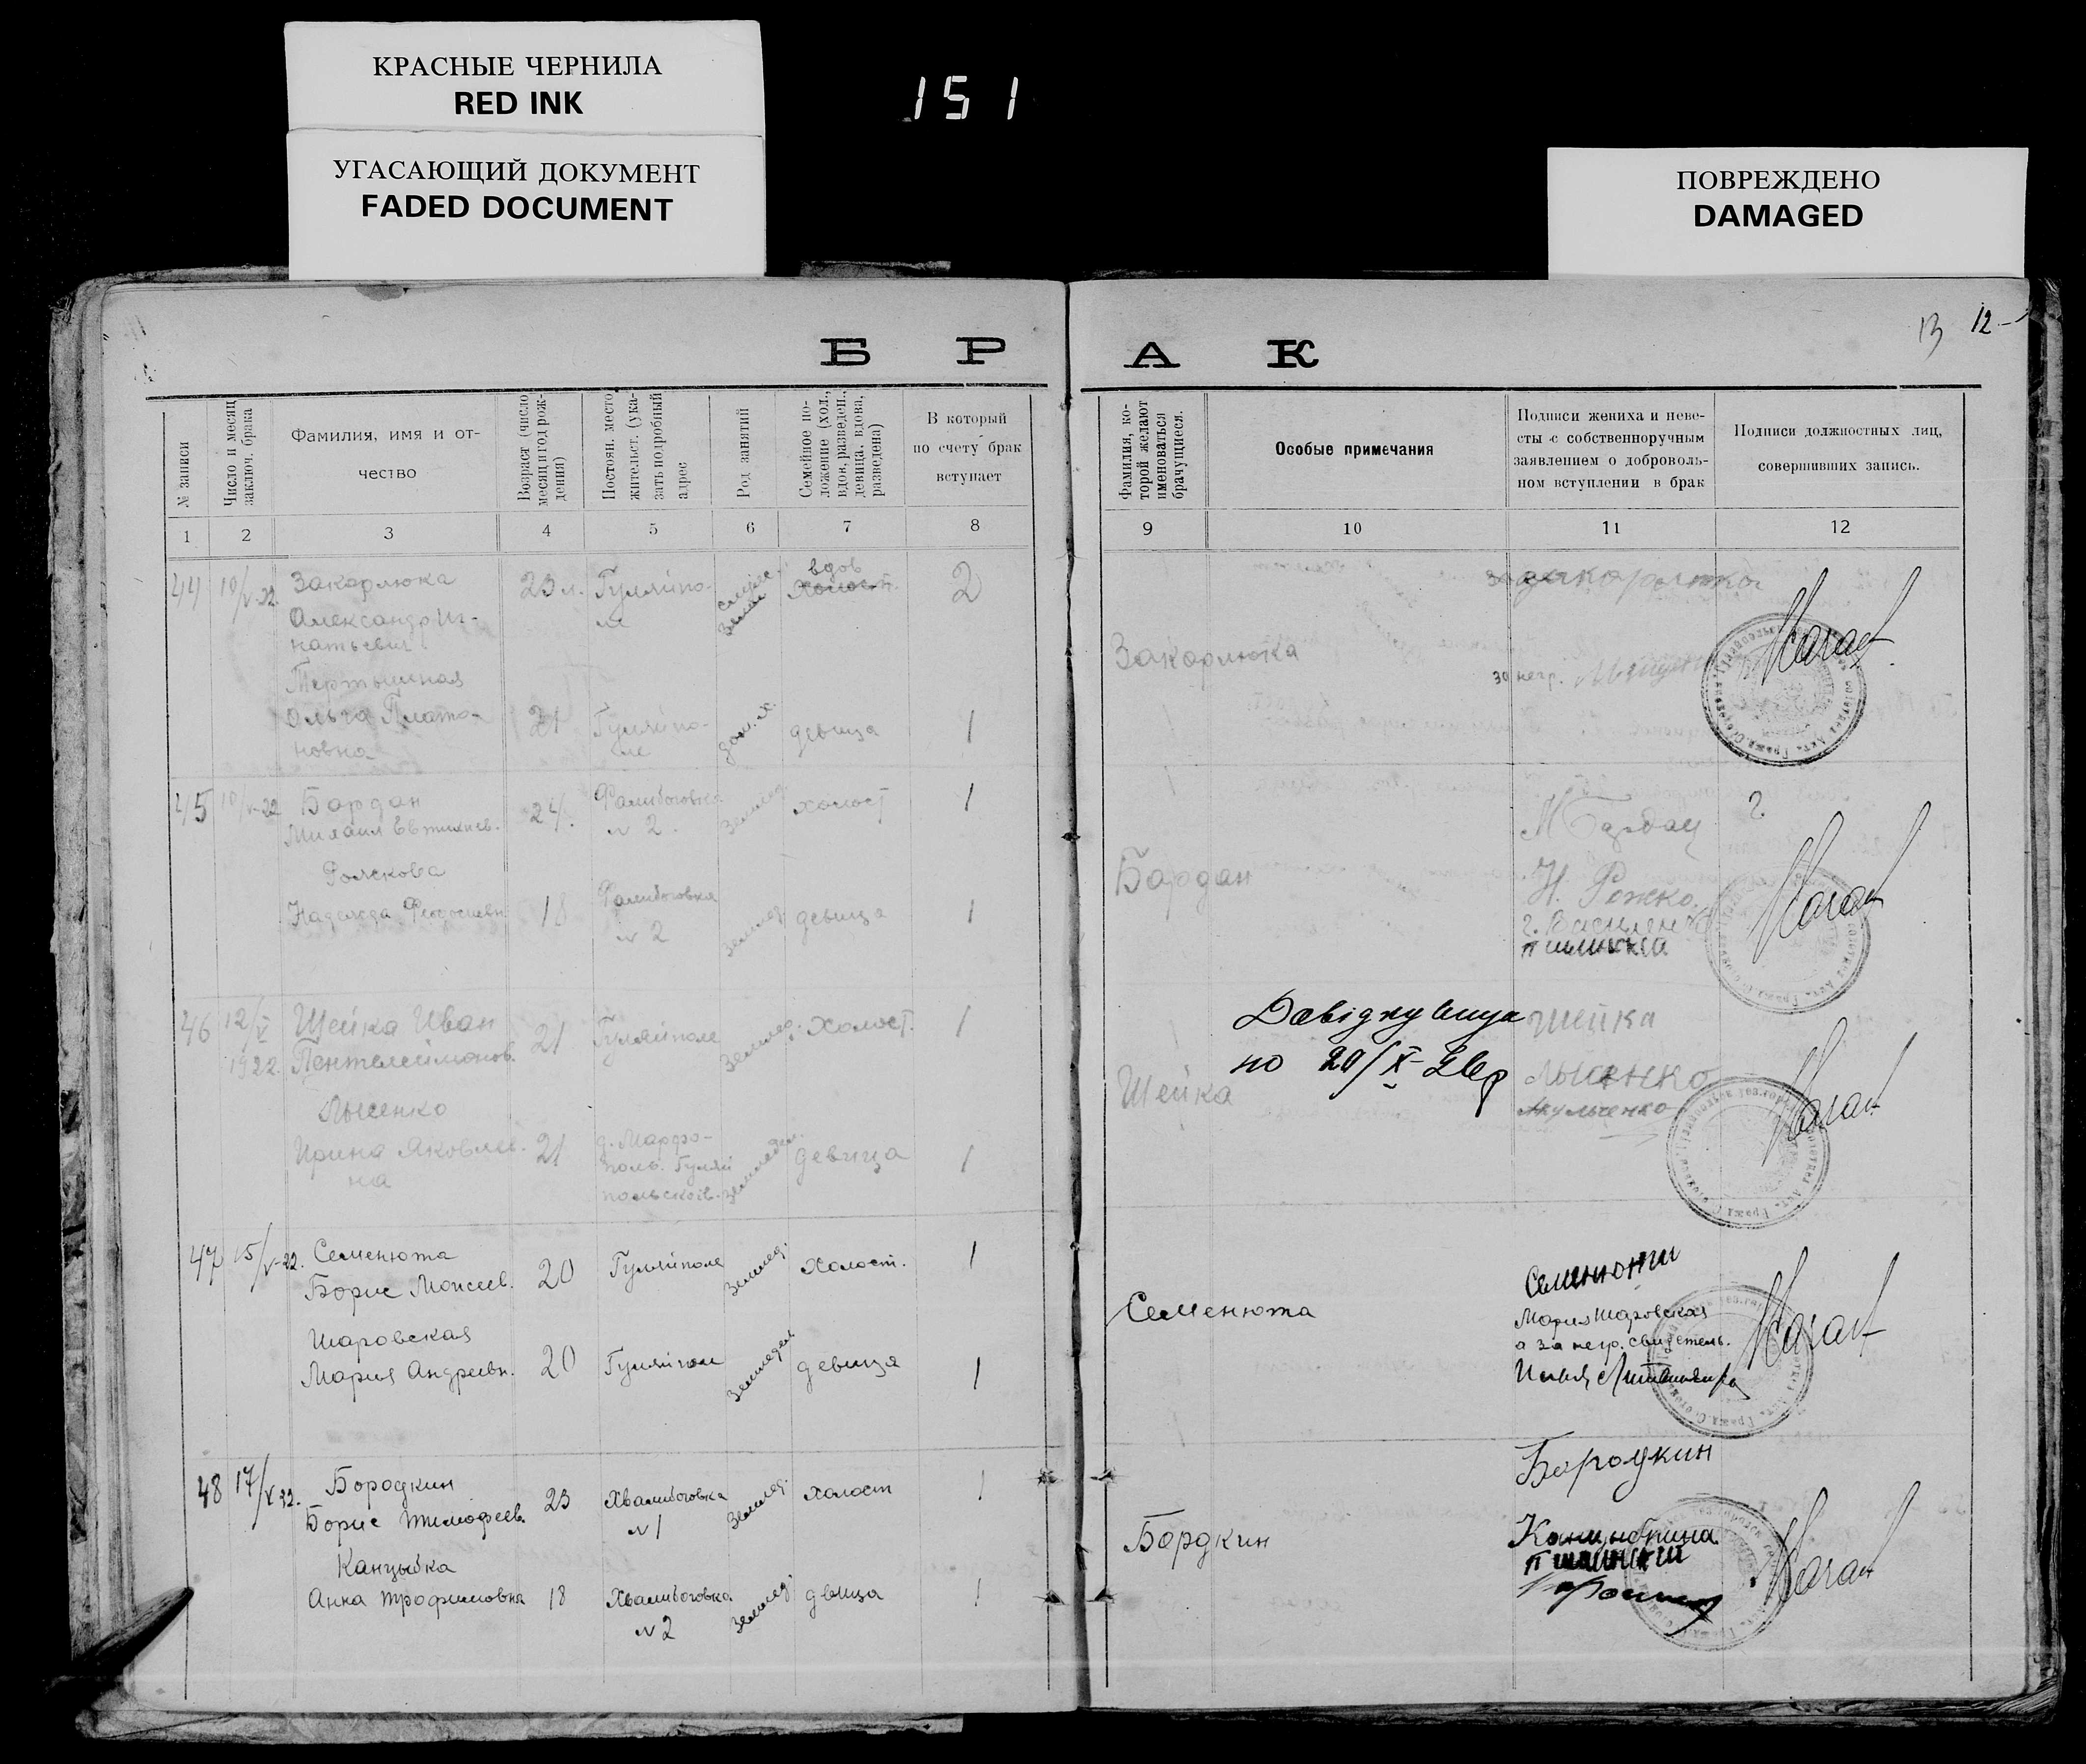 КРАСНЫЕ ЧЕРНИЛА
RED INK
УГАСАЮЩИЙ ДОКУМЕНТ
FADED DOCUMENT
151
ПОВРЕЖДЕНО
DAMAGED
13 12
Б Р А К
№ записи
Число и месяц
заключ. брака
Фамилия, имя и от-
чество
Возраст (число
месяц и год рож-
дения)
Постоян. место
жительст. (ука-
зать подробный
адрес
Род занятий
Семейное по-
ложение (хол.,
вдов, разведен.,
девица, вдова,
разведена)
В который
по счету брак
вступает
Фамилия, ко-
торой желают
именоваться
брачущиеся.
Особые примечания
Подписи жениха и неве-
сты с собственноручным
заявлением о доброволь-
ном вступлении в брак
Подписи должностных лиц,
совершивших запись.
1 2 3 4 5 6 7 8 9 10 11 12
44 10/V-22. Закорлюка 23 л. Гуляйпо- вдов 2
Александр Иг- ле холост.
натьевич
Закорлюка
за негр.
Тертышная
Ольга Плато- 21 Гуляйпо- дом. х. девица 1
новна ле
45 10/V-22 Бардан 24. Фалибоговка Землед. холост 1
Михаил Евтихиев. № 2.
М Бардан
Бардан
Рожкова
Надежда Феодосиевн 18 Фалибоговка Землед. девица 1
№ 2
Н. Рожко
46 12/V Шейка Иван 21 Гуляйполе Землед. Холост. 1
1922. Пентелеймонов.
Довідку вида
но 20/X-26р
Шейка
Шейка
Лысенко
Лысенко
Ирина Яковлев. 21 д. Марфо- Земледел. девица 1
на поль. Гуляй
польской в.
47 15/V-22. Семенюта 20 Гуляйполе Землед. Холост. 1
Борис Моисеев.
Семенюта
Шаровская
Мария Андреевн. 20 Гуляйполе Земледел девица 1
Мария Шаровская
а за негр. свидетель.
48 17/V 22. Бородкин 23 Хвалибоговка Землед. холост 1
Борис Тимофеев. № 1
Бородкин
Бордкин
Канцыбка
Анна Трофимовна 18 Хвалибоговка Землед. двица 1
№ 2